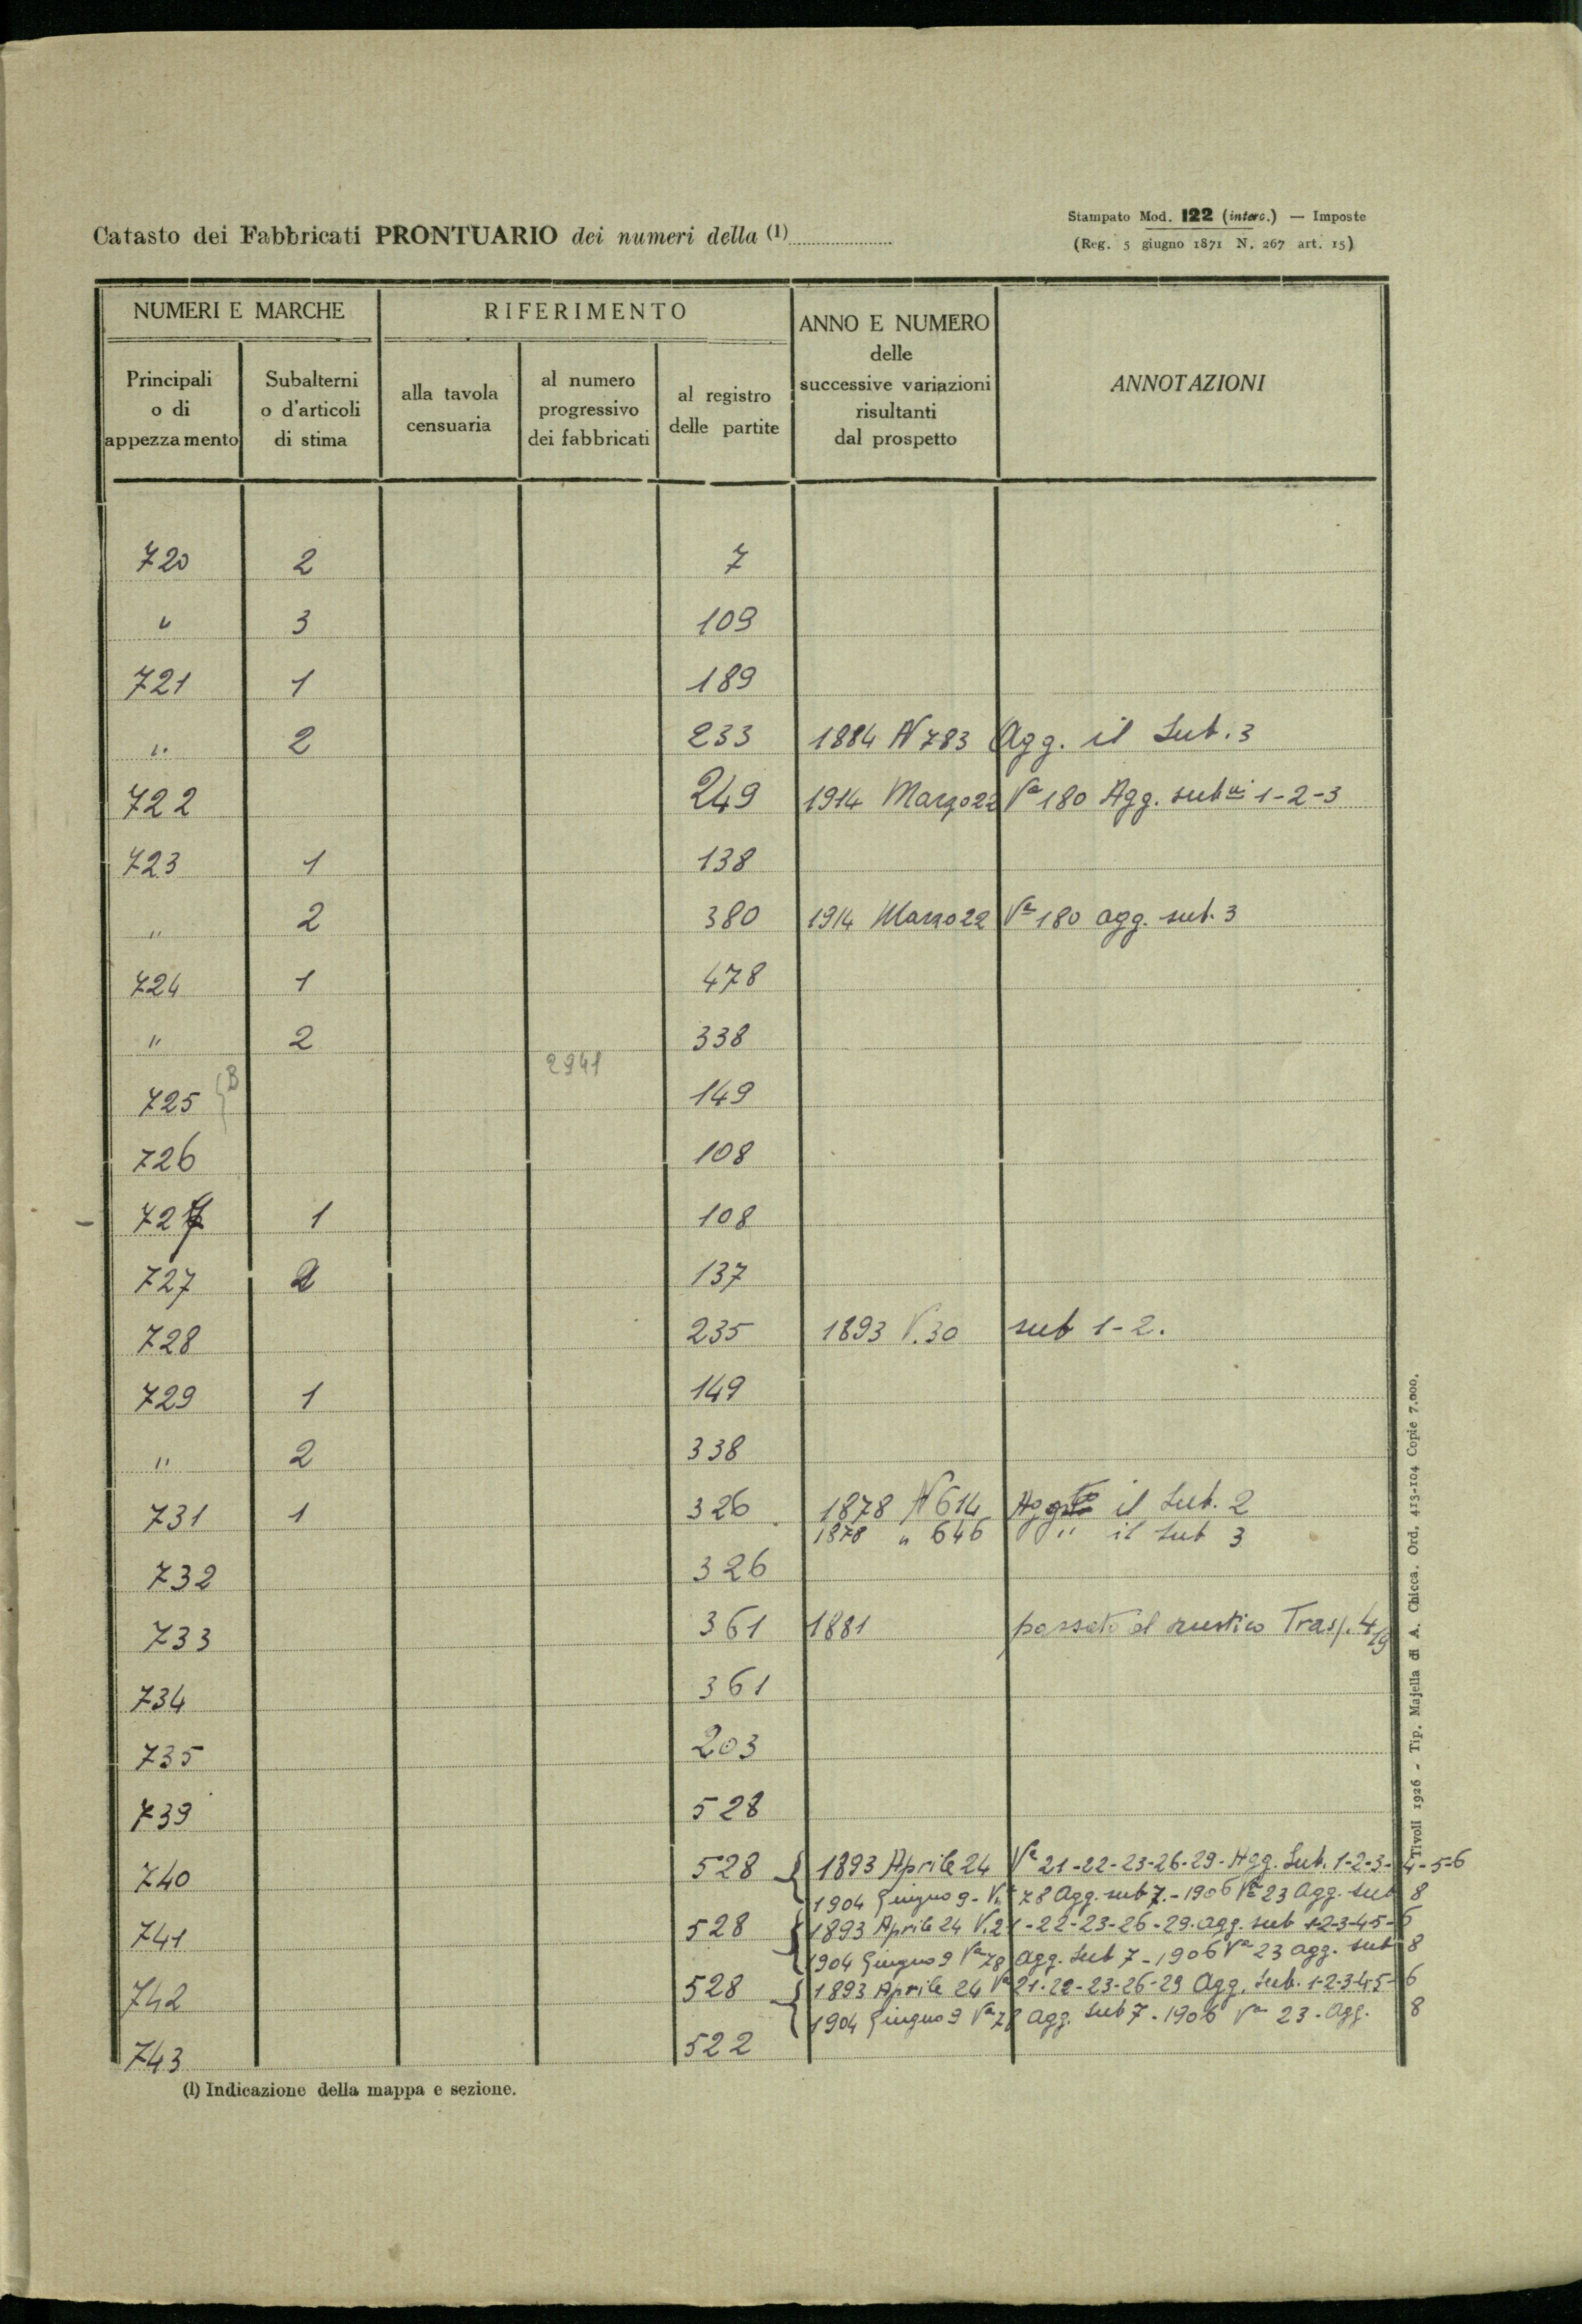 Stampato Mod. 122 (interc.) — Imposte
Catasto dei Fabbricati PRONTUARIO dei numeri della (1)
(Reg. 5 giugno 1871 N. 267 art. 15)
NUMERI E MARCHE RIFERIMENTO ANNO E NUMERO delle successive variazioni risultanti dal prospetto ANNOTAZIONI
Principali o di appezzamento Subalterni o d'articoli di stima alla tavola censuaria al numero progressivo dei fabbricati al registro delle partite
720 2 7
" 3 109
721 1 189
" 2 233 1884 N 783 Agg. il Sub. 3
722 249 1914 Marzo 22 Va 180 Agg. subni 1-2-3
723 1 138
" 2 380 1914 Marzo 22 Va 180 agg. sub. 3
724 1 478
" 2 338
2941
725 B 149
726 108
727 1 108
727 2 137
728 235 1893 V. 30 sub 1-2.
729 1 149
" 2 338
731 1 326 1878 N 614 Aggto il Sub. 2
1878 " 646 " il sub 3
732 326
733 361 1881 passato al rustico Trasp. 4/19
734 361
735 203
739 528
740 528 1893 Aprile 24 Va 21-22-23-26-29- Agg. Sub. 1-2-3-4-5-6
1904 Giugno 9 - Va 78 Agg. sub 7. - 1906 Va 23 Agg. sub 8
741 528 1893 Aprile 24 V. 21-22-23-26-29. agg. sub 1-2-3-4-5-6
1904 Giugno 9 Va 78 agg. Sub 7 - 1906 Va 23 agg. sub 8
742 528 1893 Aprile 24 Va 21-22-23-26-29 Agg. Sub. 1-2-3-4-5-6
1904 Giugno 9 Va 78 agg. Sub 7 - 1906 Va 23 - Agg. 8
743 522
(1) Indicazione della mappa e sezione.
Tivoli 1926 - Tip. Majella di A. Chicca. Ord. 413-104 Copie 7.000.